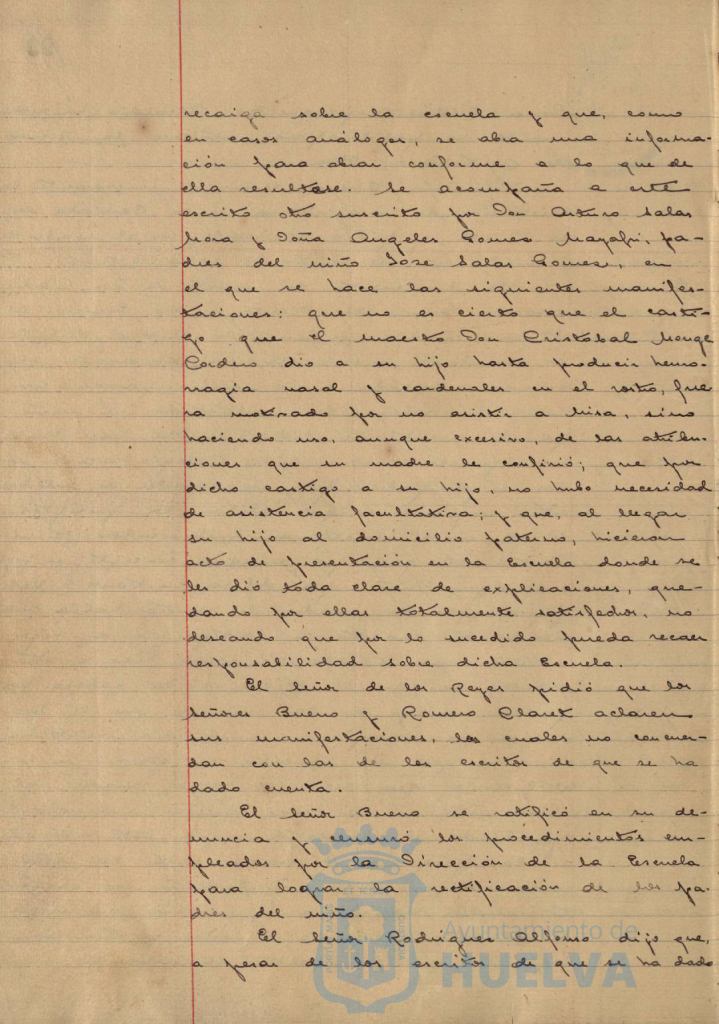 recaiga sobre la escuela y que, como
en casos análogos, se abra una informa-
ción para obrar conforme a lo que de
ella resultase. Se acompaña a este
escrito otro suscrito por Don Arturo Salas
Mora y Doña Angeles Gomez, pa-
dres del niño Jose Salas Gomez, en
el que se hace las siguientes manifes-
taciones: que no es cierto que el casti-
go que el maestro Don Cristobal Monge
Cordero dio a su hijo hasta producir hemo-
rragia nasal y cardenales en el rostro, fue-
ra motivado por no asistir a Misa, sino
haciendo uso, aunque excesivo, de las atribu-
ciones que su madre le confirió; que por
dicho castigo a su hijo, no hubo necesidad
de asistencia facultativa; y que, al llegar
su hijo al domicilio paterno, hicieron
acto de presentación en la Escuela donde se
les dió toda clase de explicaciones, que-
dando por ellas totalmente satisfechos, no
deseando que por lo sucedido pueda recaer
responsabilidad sobre dicha Escuela.
El Señor de los Reyes pidió que los
Señores Bueno y Romero Claret aclaren
sus manifestaciones, las cuales no concuer-
dan con las de los escritos de que se ha
dado cuenta.
El Señor Bueno se ratificó en su de-
nuncia y censuró los procedimientos em-
pleados por la Dirección de la Escuela
para lograr la rectificación de los pa-
dres del niño.
El Señor Rodriguez Alfonso dijo que,
a pesar de los escritos de que se ha dado
Ayuntamiento de
HUELVA